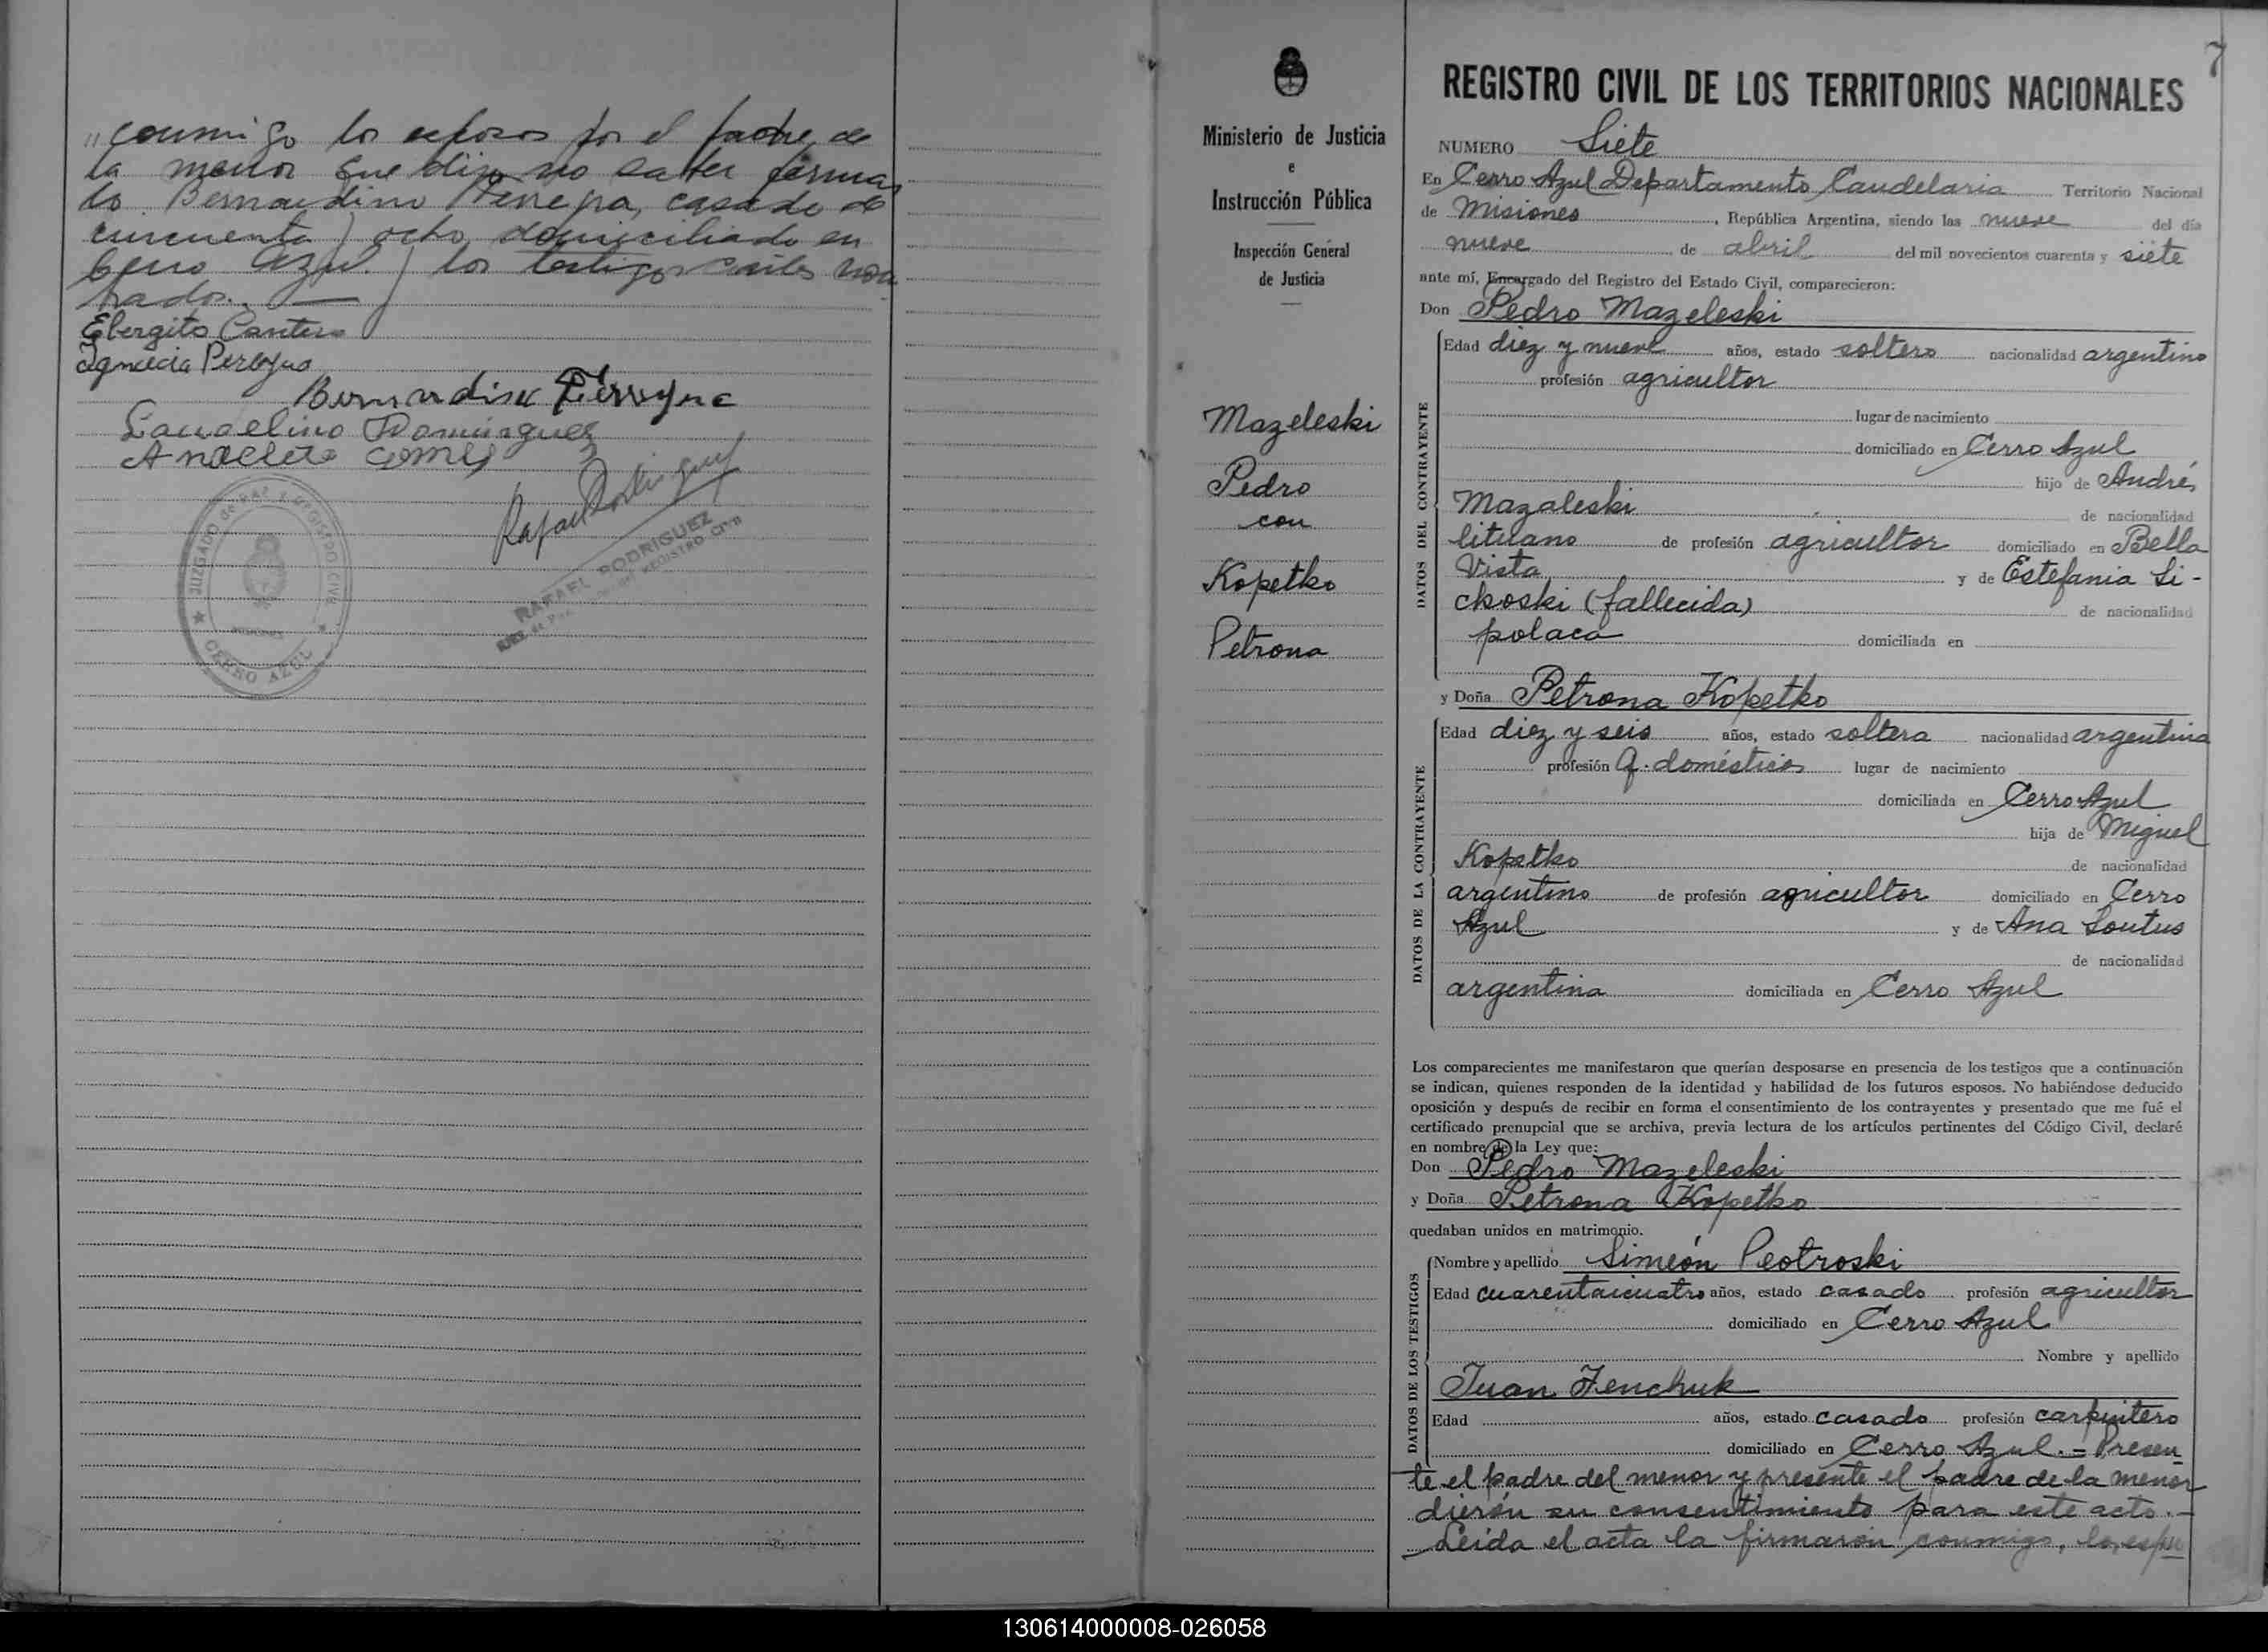 conmigo los esposos por el padre de
la menor que dijo no saber firmar
lo Bernardino Ferreyra, casado de
cincuenta y ocho domiciliado en
Cerro Azul. y los testigos nom
brados.
Ebergito Cantero
Ignacia Pereyra
Bernardino Ferreyra
Laudelino Dominguez
Anacleto Gomez
Rafael Rodriguez
JUZGADO de PAZ Y REGISTRO CIVIL
CERRO AZUL
RAFAEL RODRIGUEZ
Ministerio de Justicia
e
Instrucción Pública
Inspección General
de Justicia
Mazeleski
Pedro
con
Kopetko
Petrona
7
REGISTRO CIVIL DE LOS TERRITORIOS NACIONALES
NUMERO Siete
En Cerro Azul Departamento Candelaria Territorio Nacional
de Misiones, República Argentina, siendo las nueve del día
nueve de abril del mil novecientos cuarenta y siete
ante mí, Encargado del Registro del Estado Civil, comparecieron:
Don Pedro Mazeleski
DATOS DEL CONTRAYENTE
Edad diez y nueve años, estado soltero nacionalidad argentino
profesión agricultor
lugar de nacimiento
domiciliado en Cerro Azul
hijo de André
Mazaleski de nacionalidad
lituano de profesión agricultor domiciliado en Bella
Vista y de Estefania Si-
ckoski (fallecida) de nacionalidad
polaca domiciliada en
y Doña Petrona Kopetko
DATOS DE LA CONTRAYENTE
Edad diez y seis años, estado soltera nacionalidad argentina
profesión q. domésticos lugar de nacimiento
domiciliada en Cerro Azul
hija de Miguel
Kopetko de nacionalidad
argentino de profesión agricultor domiciliado en Cerro
Azul y de Ana Soutus
de nacionalidad
argentina domiciliada en Cerro Azul
Los comparecientes me manifestaron que querían desposarse en presencia de los testigos que a continuación
se indican, quienes responden de la identidad y habilidad de los futuros esposos. No habiéndose deducido
oposición y después de recibir en forma el consentimiento de los contrayentes y presentado que me fué el
certificado prenupcial que se archiva, previa lectura de los artículos pertinentes del Código Civil, declaré
en nombre de la Ley que:
Don Pedro Mazeleski
y Doña Petrona Kopetko
quedaban unidos en matrimonio.
DATOS DE LOS TESTIGOS
Nombre y apellido Simeón Peotroski
Edad cuarentaicuatro años, estado casado profesión agricultor
domiciliado en Cerro Azul
Nombre y apellido
Juan Zenchuk
Edad años, estado casado profesión carpintero
domiciliado en Cerro Azul.= Presen
te el padre del menor y presente el padre de la menor
dierón su consentimiento para este acto.-
Leída el acta la firmarón conmigo, los espo
130614000008-026058